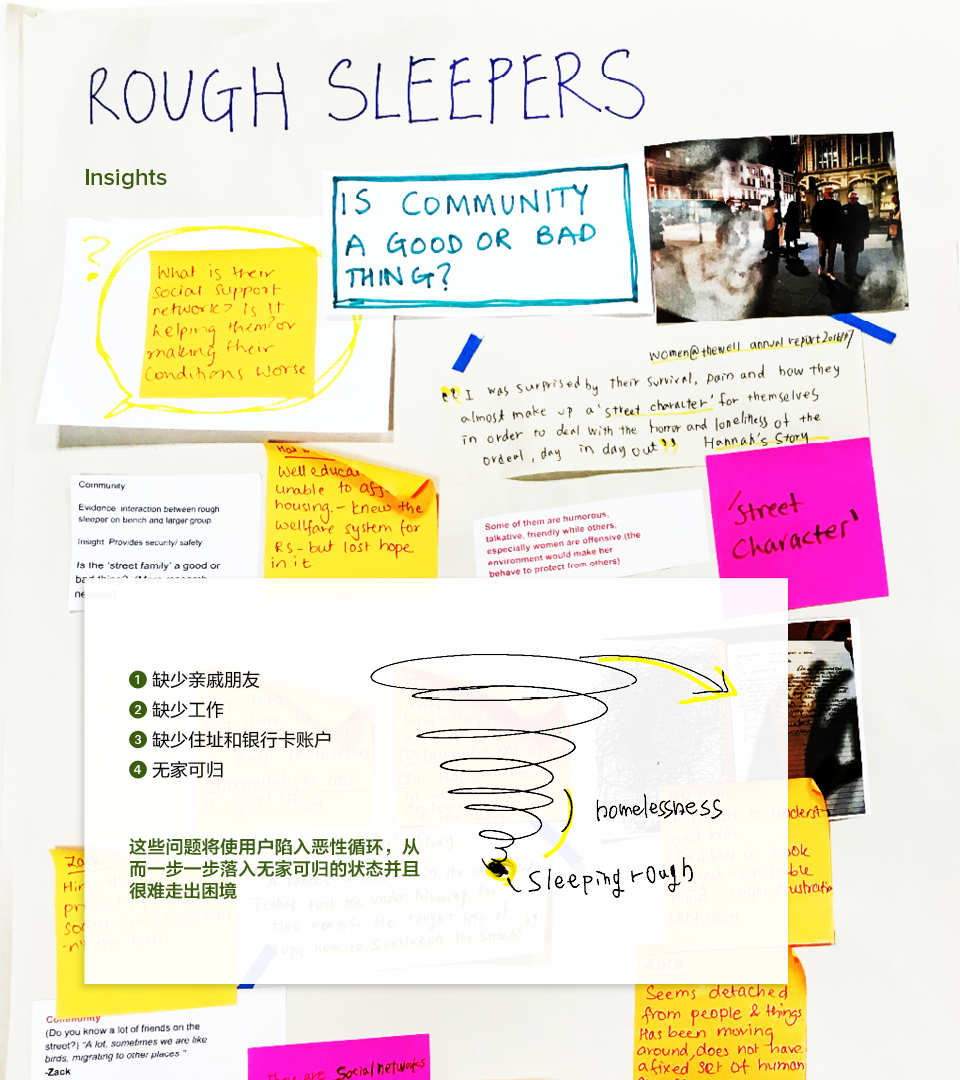 ROUGH SLEEPERS
Insights
IS COMMUNITY
A GOOD OR BAD
THING?
?
What is their
social support
network? Is it
helping them? or
making their
conditions worse
women@thewell annual report 2016/17
“I was surprised by their survival, pain and how they
almost make up a 'street character' for themselves
in order to deal with the horror and loneliness of the
ordeal, day in day out”
Hannah's Story
Community
Evidence: interaction between rough
sleeper on bench and larger group
Insight: Provides security/ safety
Is the 'street family' a good or
bad thing? (More research
needed)
Well educa
unable to aff
housing. - knew the
wellfare system for
RS - but lost hope
in it
Some of them are humorous,
talkative, friendly while others,
especially women are offensive (the
environment would make her
behave to protect from others)
'Street
Character'
1 缺少亲戚朋友
2 缺少工作
3 缺少住址和银行卡账户
4 无家可归
这些问题将使用户陷入恶性循环，从
而一步一步落入无家可归的状态并且
很难走出困境
homelessness
Sleeping rough
Community
(Do you know a lot of friends on the
street?) “A lot, sometimes we are like
birds, migrating to other places.”
-Zack
Social networks
Zack
Seems detached
from people & things
Has been moving
around, does not have
a fixed set of human